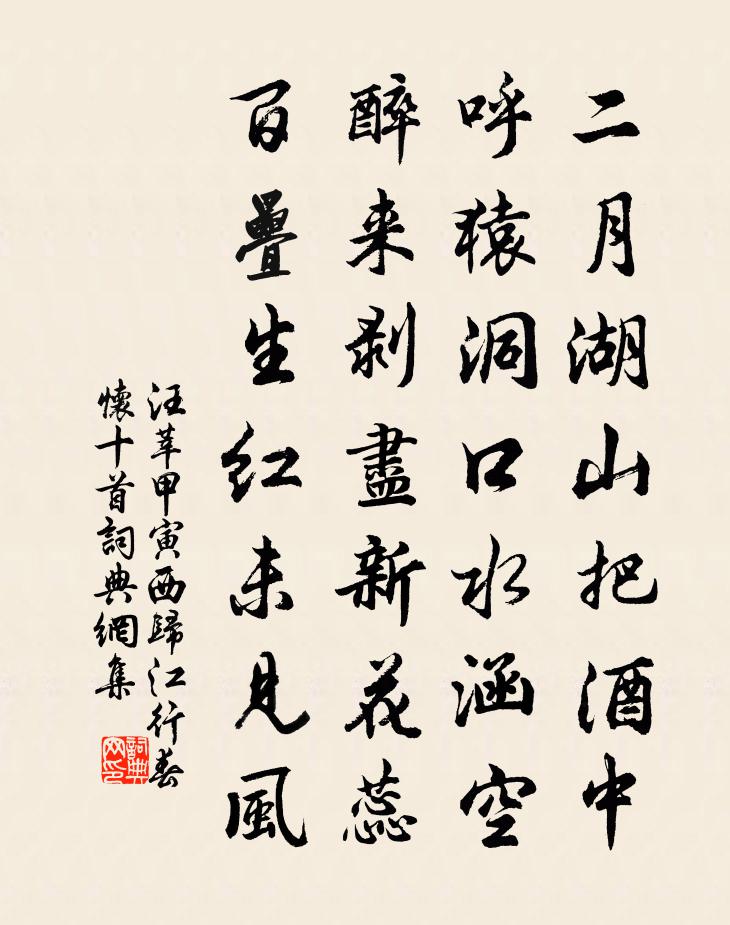 二月湖山把酒中
呼猿洞口水涵空
醉来剥盡新花蕊
百疊生红未見風
汪莘甲寅西歸江行春
懷十首詞典網集
詞典網印